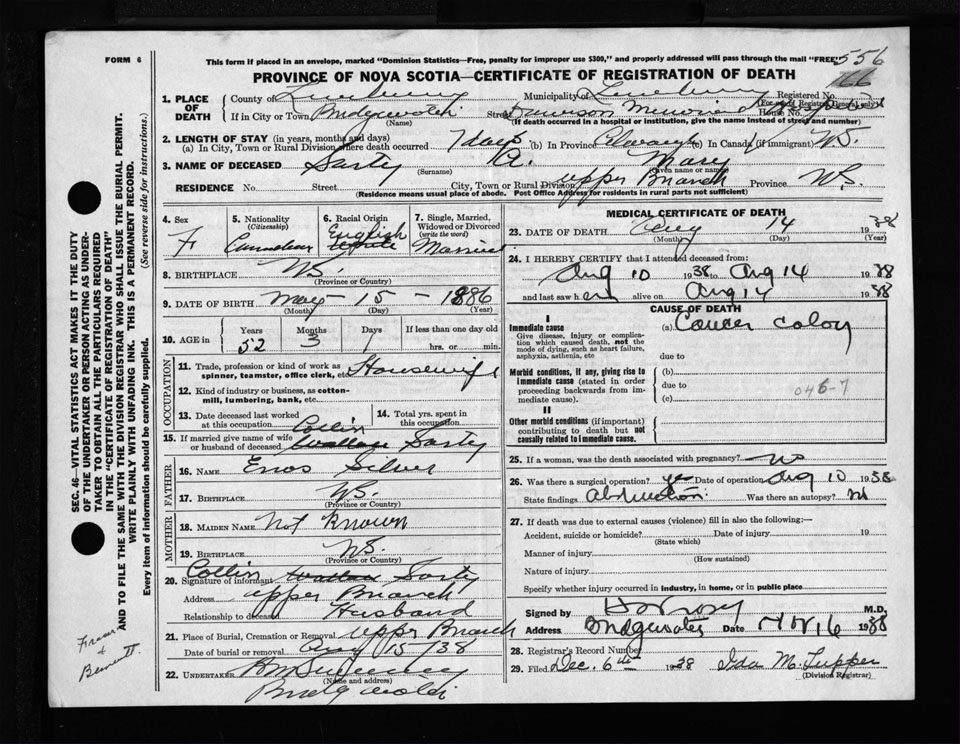 FORM 6
This form if placed in an envelope, marked "Dominion Statistics—Free, penalty for improper use $300," and properly addressed will pass through the mail "FREE"
556
66
PROVINCE OF NOVA SCOTIA—CERTIFICATE OF REGISTRATION OF DEATH
SEC. 46—VITAL STATISTICS ACT MAKES IT THE DUTY
OF THE UNDERTAKER OR PERSON ACTING AS UNDER-
TAKER TO OBTAIN ALL THE PARTICULARS REQUIRED
IN THE "CERTIFICATE OF REGISTRATION OF DEATH"
AND TO FILE THE SAME WITH THE DIVISION REGISTRAR WHO SHALL ISSUE THE BURIAL PERMIT.
WRITE PLAINLY WITH UNFADING INK. THIS IS A PERMANENT RECORD.
Every item of information should be carefully supplied. (See reverse side for instructions.)
1. PLACE OF DEATH
County of Lunenburg Municipality of Lunenburg Registered No.
(For use of Registrar General only)
If in City or Town Bridgewater Street Dawson Memorial Hospital House No.
(Name) (If death occurred in a hospital or institution, give the name instead of street and number)
2. LENGTH OF STAY (in years, months and days)
(a) In City, Town or Rural Division where death occurred 7 days (b) In Province Always (c) In Canada (if immigrant) NS.
3. NAME OF DECEASED Sarty A. Mary
(Surname) (Given name or names)
RESIDENCE No. Street City, Town or Rural Division Upper Branch Province NS.
(Residence means usual place of abode. Post Office Address for residents in rural parts not sufficient)
4. Sex F
5. Nationality (Citizenship) Canadian
6. Racial Origin English White
7. Single, Married, Widowed or Divorced (write the word) Married
8. BIRTHPLACE NS.
(Province or Country)
9. DATE OF BIRTH May - 15 - 1886
(Month) (Day) (Year)
10. AGE in Years Months Days If less than one day old
52 3 hrs. or min.
OCCUPATION
11. Trade, profession or kind of work as spinner, teamster, office clerk, etc. Housewife
12. Kind of industry or business, as cotton-mill, lumbering, bank, etc.
13. Date deceased last worked at this occupation
14. Total yrs. spent in this occupation
15. If married give name of wife or husband of deceased Collin Sarty
FATHER
16. NAME Enos Silver
17. BIRTHPLACE NS.
(Province or Country)
MOTHER
18. MAIDEN NAME Not Known
19. BIRTHPLACE NS.
(Province or Country)
20. Signature of informant Collin Sarty
Address Upper Branch
Relationship to deceased Husband
21. Place of Burial, Cremation or Removal Upper Branch
Date of burial or removal Aug 15/38
22. UNDERTAKER
(Name and address)
Bridgewater
MEDICAL CERTIFICATE OF DEATH
23. DATE OF DEATH Aug 14 1938
(Month) (Day) (Year)
24. I HEREBY CERTIFY that I attended deceased from:
Aug 10 1938 to Aug 14 1938
and last saw her alive on Aug 14 1938
CAUSE OF DEATH
I
Immediate cause
Give disease, injury or complication which caused death, not the mode of dying, such as heart failure, asphyxia, asthenia, etc
(a) Cancer colon
due to
Morbid conditions, if any, giving rise to immediate cause (stated in order proceeding backwards from immediate cause).
(b)
due to
(c)
046-7
II
Other morbid conditions (if important) contributing to death but not causally related to immediate cause.
25. If a woman, was the death associated with pregnancy? no
26. Was there a surgical operation? yes Date of operation Aug 10 1938
State findings Obstruction Was there an autopsy? no
27. If death was due to external causes (violence) fill in also the following:—
Accident, suicide or homicide? Date of injury 19
(State which)
Manner of injury
(How sustained)
Nature of injury
Specify whether injury occurred in industry, in home, or in public place
Signed by M.D.
Address Bridgewater Date 16 1938
28. Registrar's Record Number
29. Filed Dec. 6th 1938 Ida M. Tupper
(Division Registrar)